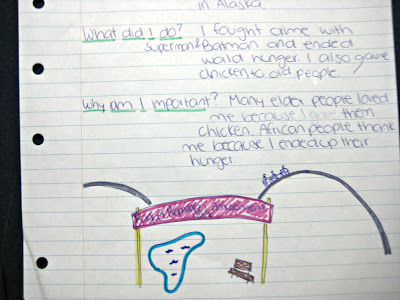 in Alaska.
What did I do? I fought crime with
Superman & Batman and ended
world hunger. I also gave
chicken to old people.
Why am I important? Many elder people loved
me because I gave them
chicken. African people thank
me because I ended up their
hunger.